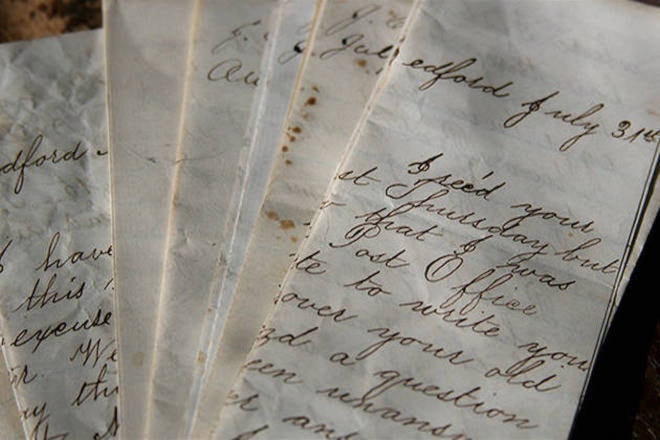 dford
I have
this
excuse
r. We
y thi
Au
Jul
edford July 31st
I rec'd your
st Thursday but
that I was
Post Office
te to write you
over your old
nd a question
een unansw
er an